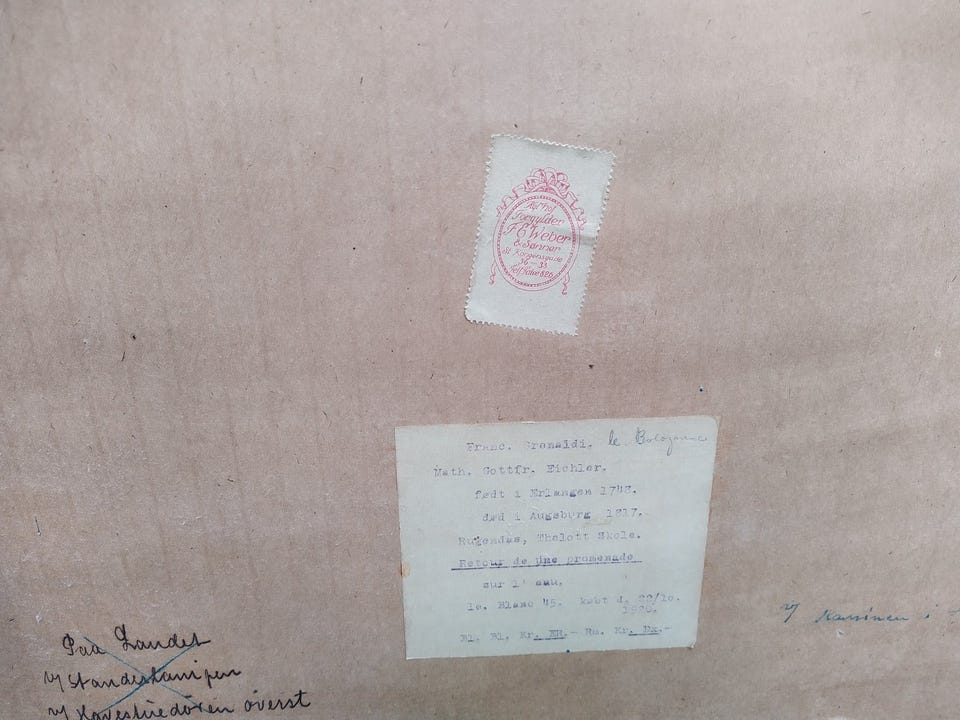 Forgylder
F C Weber
& Sønner
St Kongensgade
36 — 38
Franc. Grenaldi. le Bolognese
Math. Gottfr. Eichler.
født i Erlangen 1748.
død i Augsburg 1817.
Rugendas, Thelott Skole.
Retour de une promenade
sur l' eau.
le. Blanc 45. købt d. 22/10.
1920.
Bl. Bl. Kr. - Rm. Kr. Ex.-
Paa Landet
v/ Standerlampen
v/ Havestuedøren øverst
v/ Kaminen i